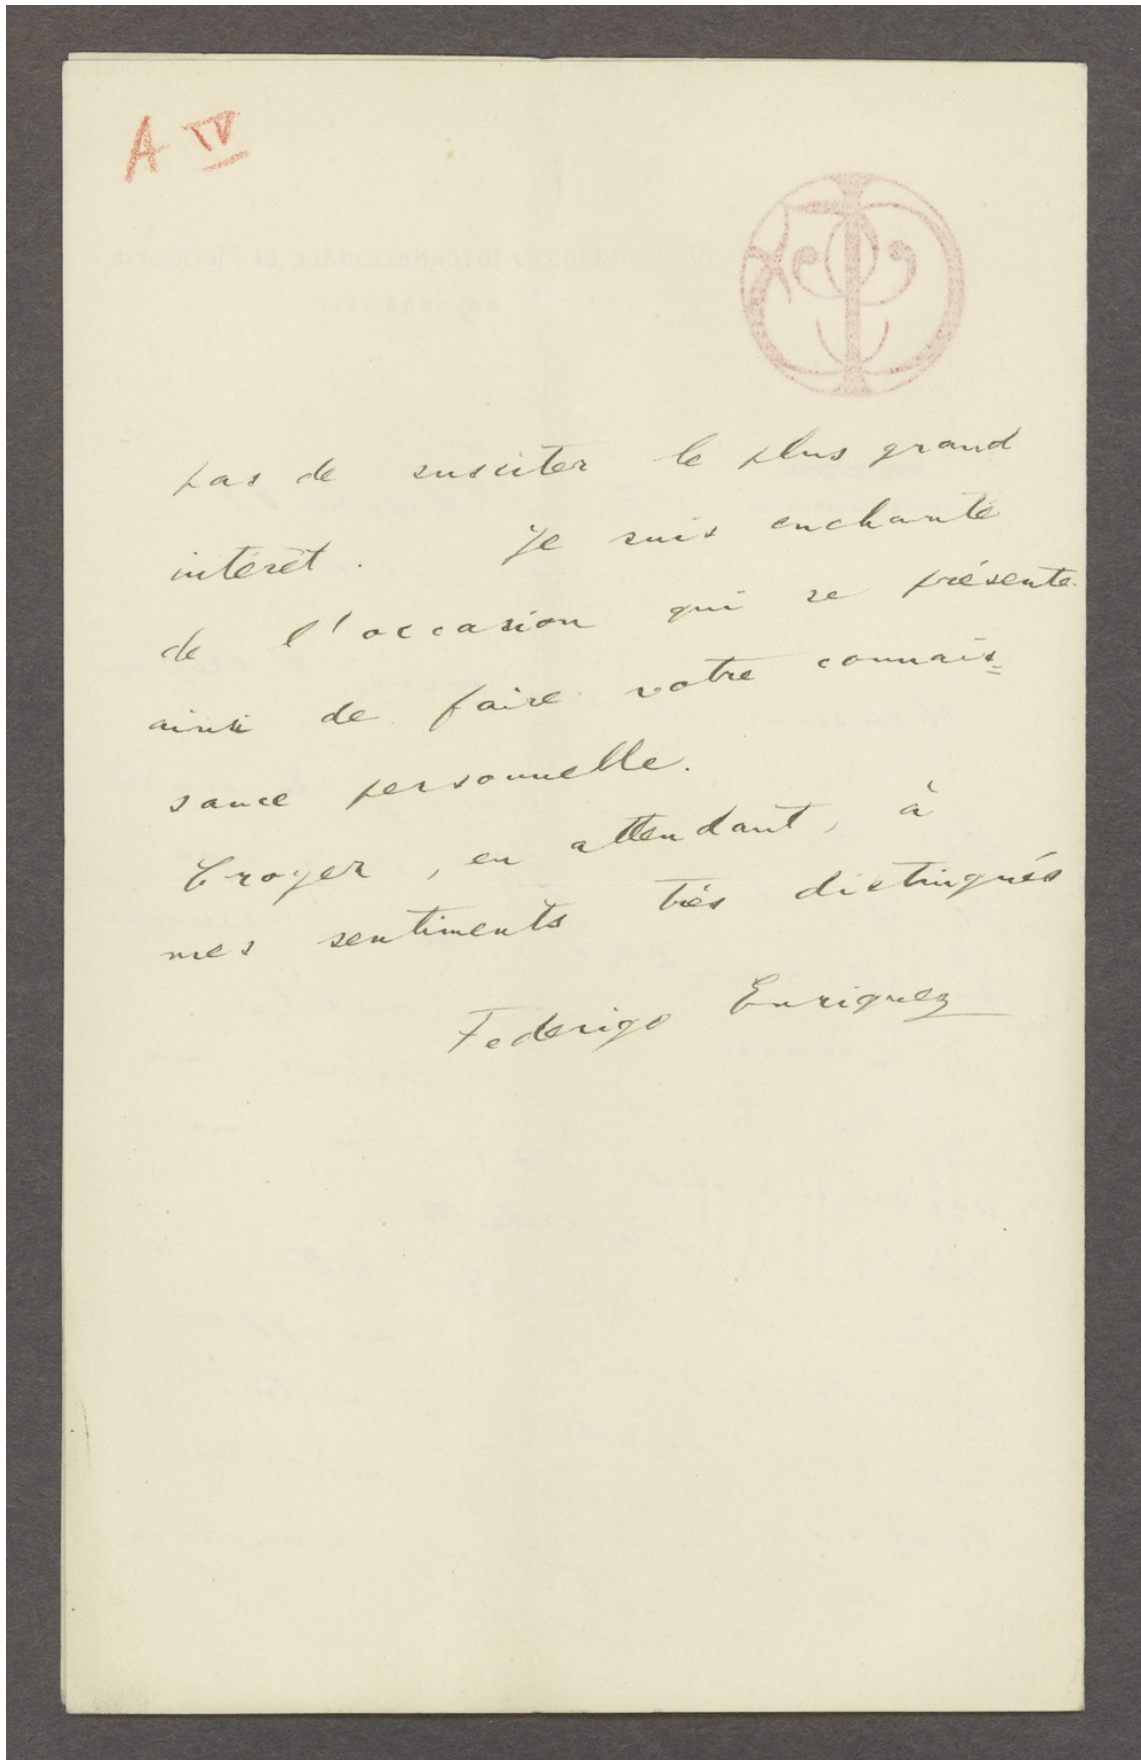 A IV
pas de susciter le plus grand
intérêt. Je suis enchanté
de l'occasion qui se présente
ainsi de faire votre connais=
sance personnelle.
Croyez, en attendant, à
mes sentiments très distingués
Federigo Enriques